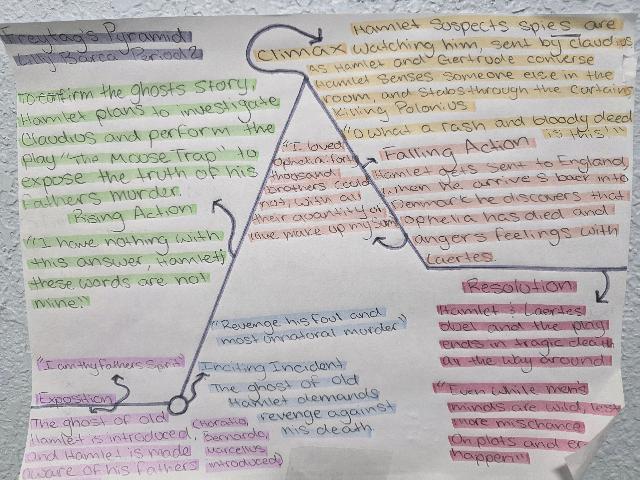 Freytag's Pyramid
Lilly Barca Period 2
Climax
Hamlet suspects spies are
watching him, sent by claudius
As Hamlet and Gertrude converse
Hamlet senses someone else in the
room, and stabs through the curtains
Killing Polonius
"O what a rash and bloody deed
is this!"
To confirm the ghosts story,
Hamlet plans to investigate
Claudius and perform the
Play "The Mouse Trap" to
expose the truth of his
Fathers murder.
Rising Action
"I have nothing with
this answer, Hamlet;
these words are not
mine."
"I loved
Ophelia: forty
thousand
brothers could
not, with all
their quantity of
love make up my sum
Falling Action
Hamlet gets sent to England,
when he arrives back into
Denmark he discovers that
Ophelia has died and
angers feelings with
Laertes.
Resolution
Hamlet & Laertes
duel and the play
ends in tragic death
all the way around
"Even while men's
minds are wild, lest
more mischance
On plots and er-
happen"
"Revenge his foul and
most unnatural murder"
Inciting Incident
The ghost of old
Hamlet demands
revenge against
his death
"I am thy Fathers Spirit"
Exposition
The ghost of old
Hamlet is introduced,
and Hamlet is made
aware of his fathers
(Horatio,
Bernardo,
Marcellus
introduced)